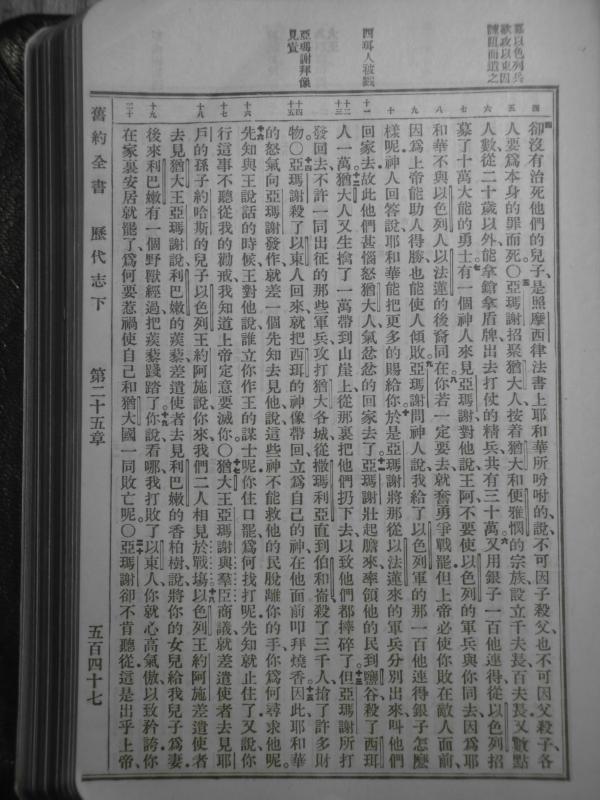 募以色列兵
欲攻以東因
諫阻而遣之
西珥人被戮
亞瑪謝拜像
見責
四 五 六 七 八 九 十 十一 十二 十三 十四 十五 十六 十七 十八 十九 二十
卻沒有治死他們的兒子、是照摩西律法書上耶和華所吩咐的、說、不可因子殺父、也不可因父殺子、各
人要爲本身的罪而死。〇亞瑪謝招聚猶大人、按着猶大和便雅憫的宗族、設立千夫長、百夫長、又數點
人數、從二十歲以外、能拿鎗拿盾牌出去打仗的精兵、共有三十萬。又用銀子一百他連得、從以色列招
募了十萬大能的勇士。有一個神人來見亞瑪謝、對他說、王阿、不要使以色列的軍兵與你同去、因爲耶
和華不與以色列人以法蓮的後裔同在。你若一定要去、就奮勇爭戰罷、但上帝必使你敗在敵人面前、
因爲上帝能助人得勝、也能使人傾敗。亞瑪謝問神人說、我給了以色列軍的那一百他連得銀子怎麼
樣呢。神人回答說、耶和華能把更多的賜給你。於是亞瑪謝將那從以法蓮來的軍兵分別出來、叫他們
回家去、故此他們甚惱怒猶大人、氣忿忿的回家去了。亞瑪謝壯起膽來、率領他的民到鹽谷、殺了西珥
人一萬。猶大人又生擒了一萬、帶到山崖上、從那裏把他們扔下去、以致他們都摔碎了。但亞瑪謝所打
發回去、不許一同出征的那些軍兵、攻打猶大各城、從撒瑪利亞直到伯和崙、殺了三千人、搶了許多財
物。〇亞瑪謝殺了以東人回來、就把西珥的神像帶回、立爲自己的神、在他面前叩拜燒香。因此耶和華
的怒氣向亞瑪謝發作、就差一個先知去見他、說、這些神不能救他的民脫離你的手、你爲何尋求他呢。
先知與王說話的時候、王對他說、誰立你作王的謀士呢、你住口罷、爲何找打呢。先知就止住了、又說、你
行這事、不聽從我的勸戒、我知道上帝定意要滅你。〇猶大王亞瑪謝與羣臣商議、就差遣使者去見耶
戶的孫子、約哈斯的兒子、以色列王約阿施、說、你來、我們二人相見於戰塲。以色列王約阿施差遣使者
去見猶大王亞瑪謝、說、利巴嫩的蒺藜、差遣使者去見利巴嫩的香柏樹、說、將你的女兒給我兒子爲妻。
後來利巴嫩有一個野獸經過、把蒺藜踐踏了。你說、看哪、我打敗了以東人、你就心高氣傲、以致矜誇、你
在家裏安居就罷了、爲何要惹禍、使自己和猶大國一同敗亡呢。〇亞瑪謝卻不肯聽從、這是出乎上帝、
舊約全書 歷代志下 第二十五章 五百四十七